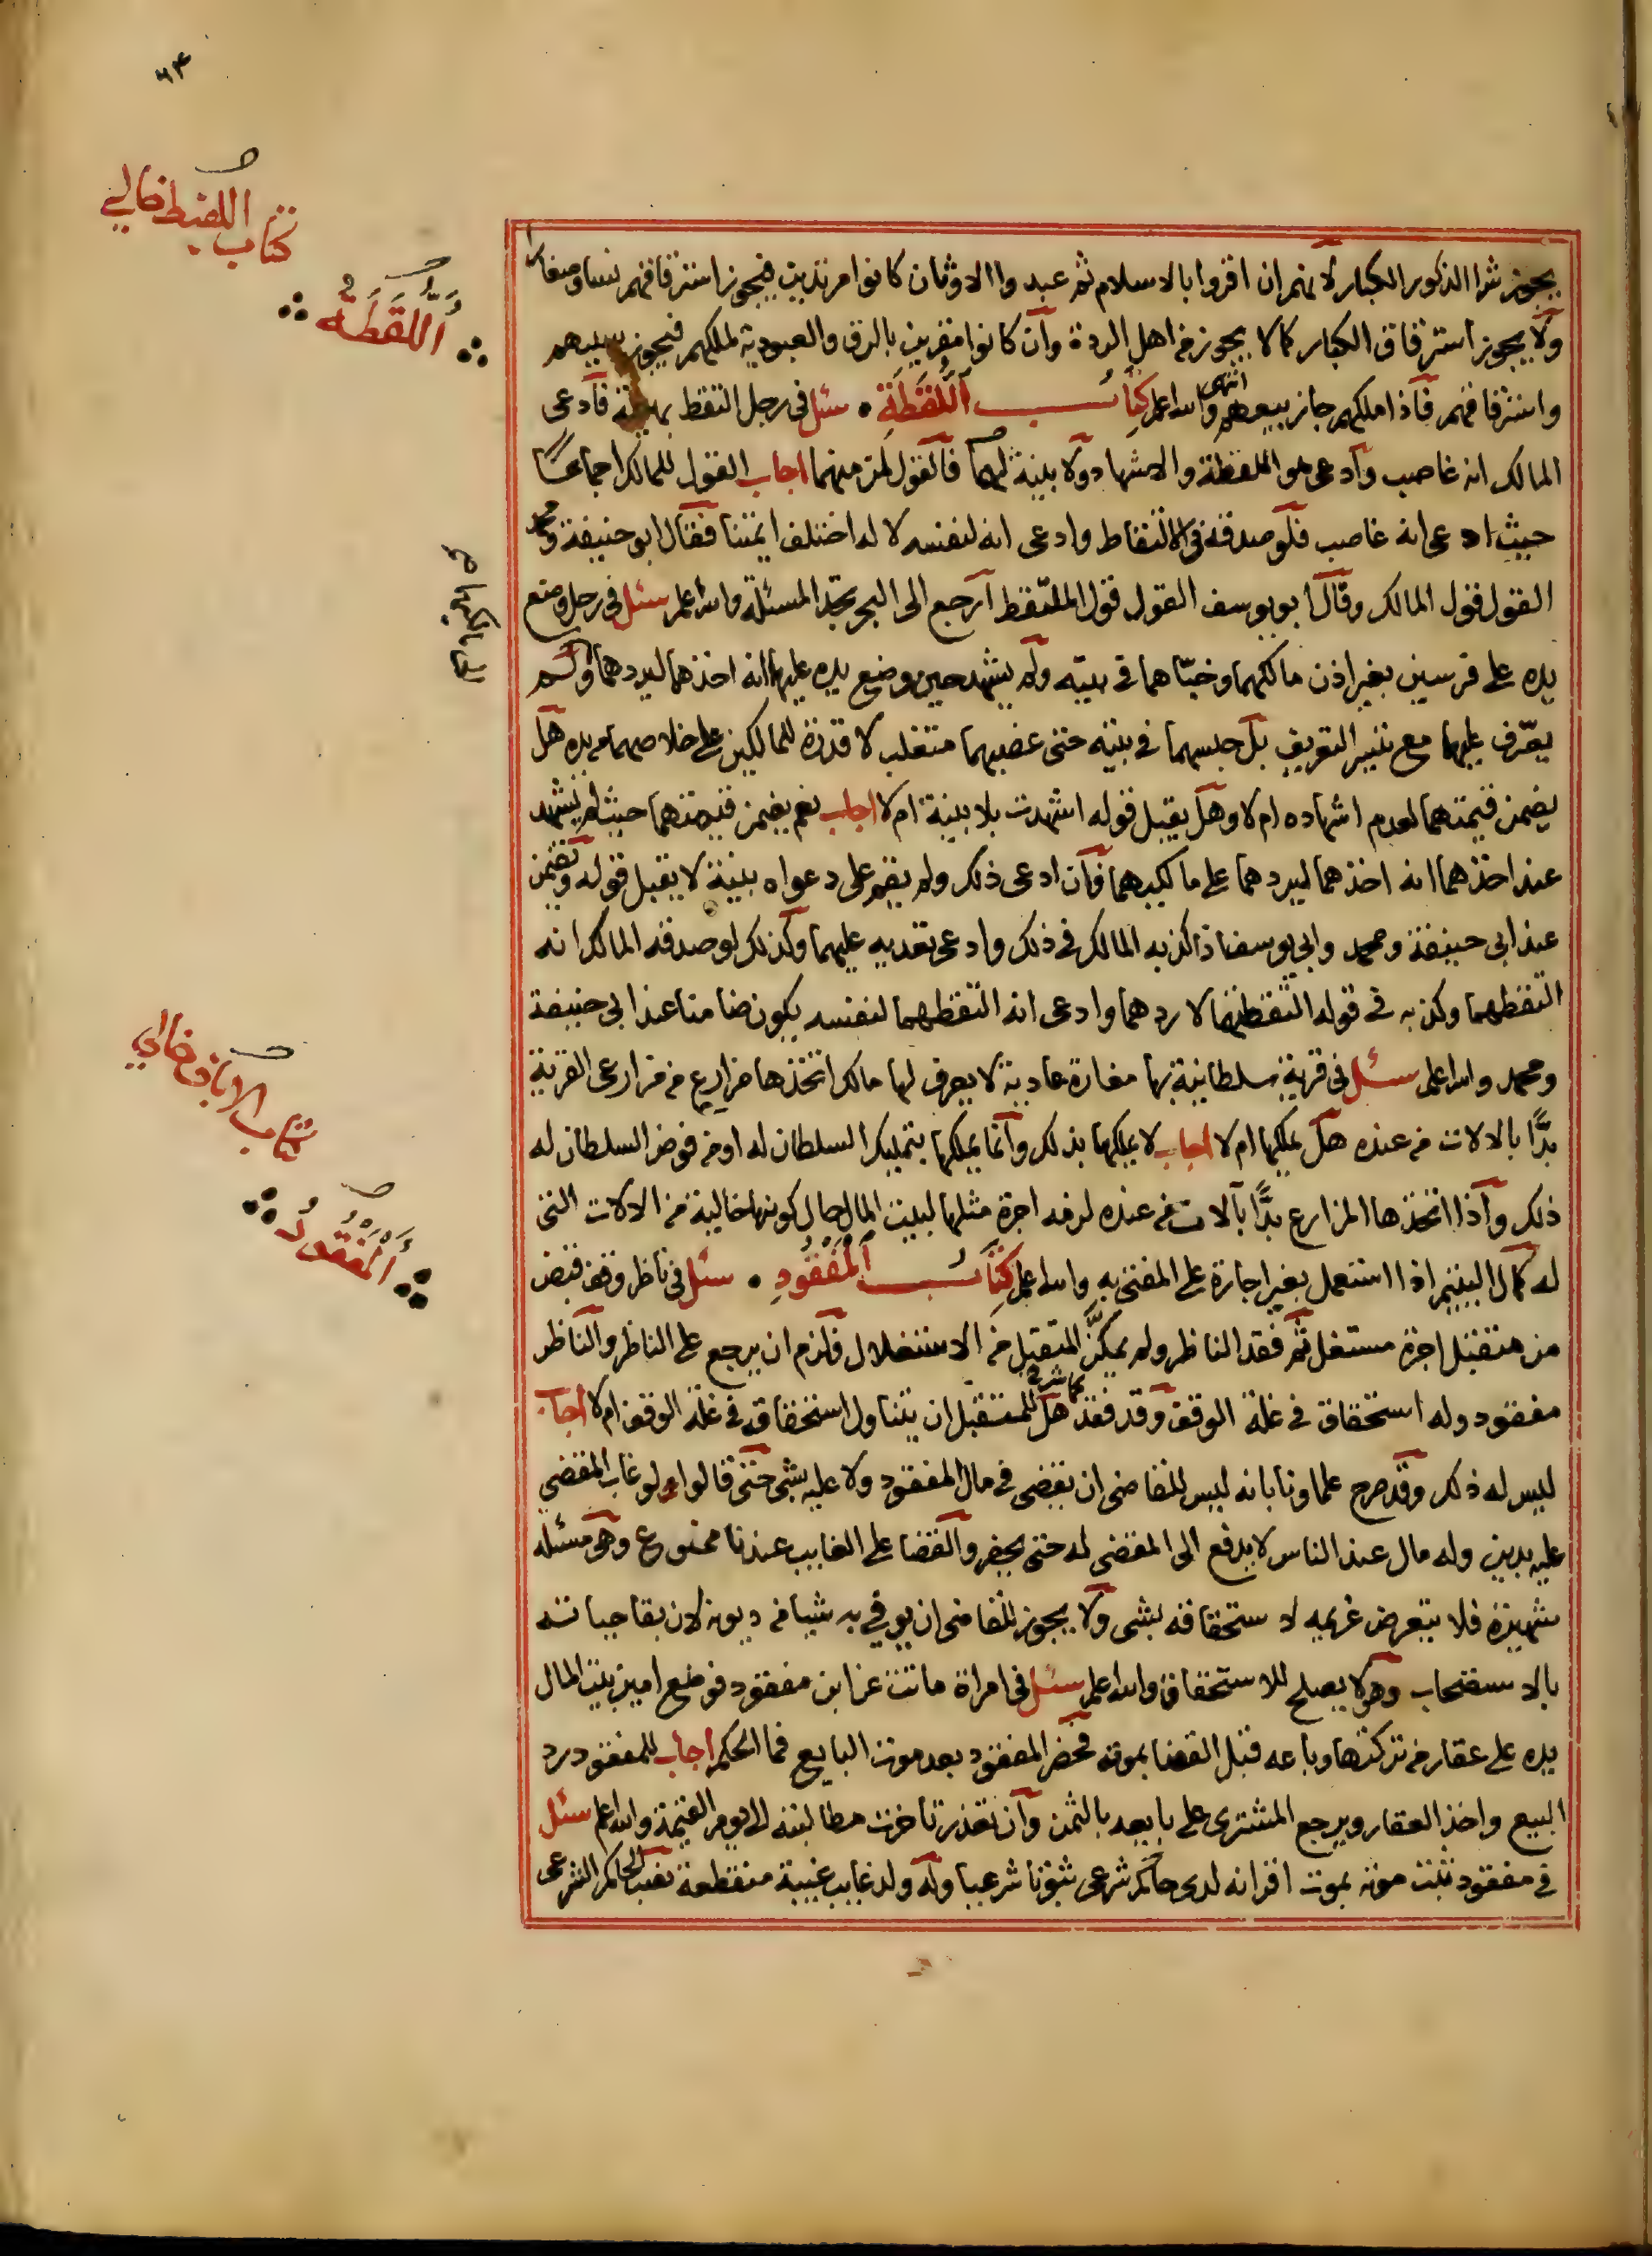 ٦٤
كتاب اللقيط خالي
اللُّقَطَةُ
يجوز شرا الذكور الكبار لانهم ان اقروا بالاسلام ثم عبدوا الاوثان كانوا مرتدين فيجوز استرقاقهم نسا وصغارا
ولا يجوز استرقاق الكبار كما لا يجوز من اهل الردة وان كانوا مقرين بالرق والعبودية لملكهم فيجوز سبيهم
واسترقاقهم فاذا ملكهم جاز بيعهم انتهى والله اعلم كتاب اللُّقَطَةِ سئل في رجل التقط بهيمة فادعى
المالك انه غاصب وادعى هو اللقطة والاشهاد ولا بينة لهما فالقول لمن منهما اجاب القول للمالك اجماعا
حيث ادعى انه غاصب فلو صدقه في الالتقاط وادعى انه لنفسه لا له اختلف ايمتنا فقال ابو حنيفة ومحمد
القول قول المالك وقال ابو يوسف القول قول الملتقط ارجع الى البحر تجد المسئلة والله اعلم سئل في رجل وضع
يده على فرسين بغير اذن مالكهما وخبّاهما في بيته ولم يشهد حين وضع يده عليهما انه اخذهما ليردهما ولم
يعرّف عليهما مع تيسر التعريف بل حبسهما في بيته حتى غصبهما متغلب لا قدرة للمالكين على خلاصهما من يده هل
يضمن قيمتهما لعدم اشهاده ام لا وهل يقبل قوله اشهدت بلا بينة ام لا اجاب نعم يضمن قيمتهما حيث لم يشهد
عند اخذهما انه اخذهما ليردهما على مالكيهما فان ادعى ذلك ولم يقم على دعواه بينة لا يقبل قوله ويضمن
عند ابي حنيفة ومحمد وابي يوسف اذا كذبه المالك في ذلك وادعى تعديه عليهما وكذلك لو صدقه المالك انه
التقطهما وكذبه في قوله التقطتهما لاردهما وادعى انه التقطهما لنفسه يكون ضامنا عند ابي حنيفة
ومحمد والله اعلم سئل في قرية سلطانية بها مغارة عادية لا يعرف لها مالك اتخذها مزارع من مزارعى القرية
بدًّا بالالات من عنده هل يملكها ام لا اجاب لا يملكها بذلك وانما يملكها بتمليك السلطان له او من فوض السلطان له
ذلك واذا اتخذها المزارع بدًّا بآلات من عنده لزمه اجرة مثلها لبيت المال حال كونها خالية من الالات التي
له كمال اليتيم اذا استعمل بغير اجارة على المفتى به والله اعلم كتاب الْمَفْقُودِ سئل في ناظر وقف قبض
من متقبل اجرة مستغل ثم فقد الناظر ولم يمكّن المتقبل من الاستغلال فلزم ان يرجع على الناظر والناظر
مفقود وله استحقاق في غلة الوقف وقد فقد هل للمتقبل ان يتناول استحقاقه في غلة الوقف ام لا اجاب
ليس له ذلك وقد صرح علماونا بانه ليس للقاضي ان يقضي في مال المفقود ولا عليه بشي حتى قالوا ولو غاب المقضي
عليه بدين وله مال عند الناس لا يدفع الى المقضى له حتى يحضر والقضا على الغايب عندنا ممنوع وهي مسئلة
شهيرة فلا يتعرض غريمه لاستحقاقه بشى ولا يجوز للقاضي ان يوفي به شيا من ديونه لان بقا حياته
بالاستصحاب وهو لا يصلح للاستحقاق والله اعلم سئل في امراة ماتت عن ابن مفقود فوضع امين بيت المال
يده على عقار من تركتها وباعه قبل القضا بموته فحضر المفقود بعد موت البايع فما الحكم اجاب للمفقود رد
البيع واخذ العقار ويرجع المشترى على بايعه بالثمن وان تعذر تاخرت مطالبته الى يوم القيمة والله اعلم سئل
في مفقود ثبت موته بموت اقرانه لدى حاكم شرعى ثبوتا شرعيا وله ولد غايب غيبة منقطعة نصب الحاكم الشرعى
كتاب الاباق خالي
الْمَفْقُودُ